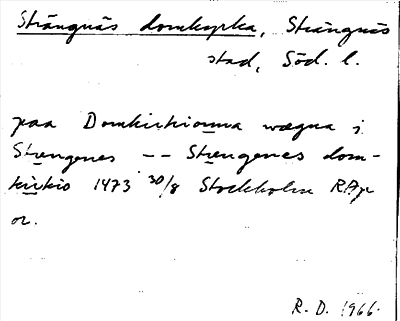 Strängnäs domkyrka, Strängnäs
stad, Söd. l.
paa Domkirkionna wægna i
Strengenes -- Strengenes dom-
kirkio 1473 30/8 Stockholm RAp
or.
R. D. 1966.